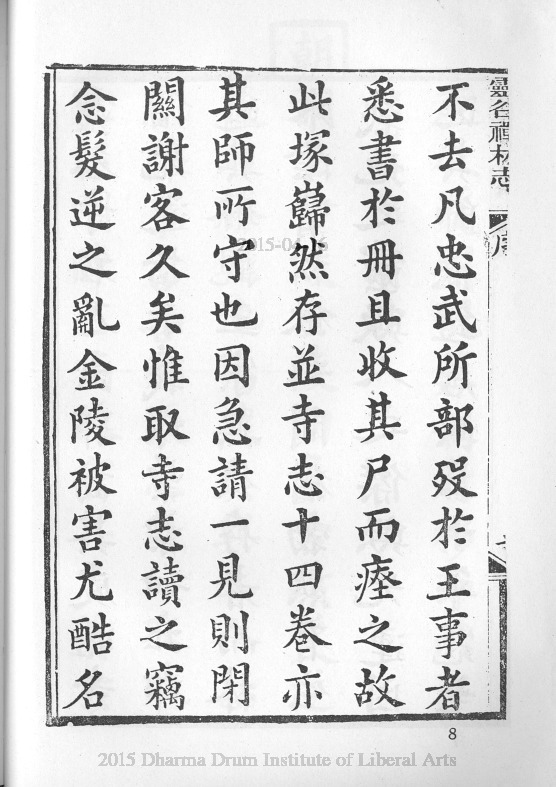 靈谷禪林志
不去凡忠武所部殁於王事者
悉書於冊且收其尸而瘞之故
此塚巋然存並寺志十四卷亦
其師所守也因急請一見則閉
關謝客久矣惟取寺志讀之竊
念髮逆之亂金陵被害尤酷名
8
2015 Dharma Drum Institute of Liberal Arts